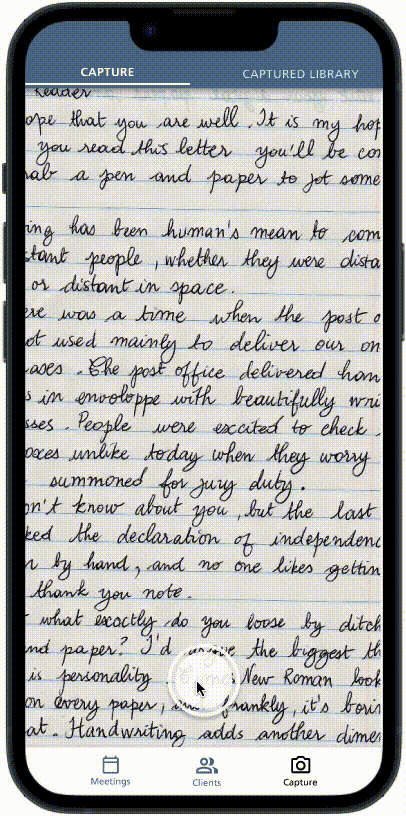 CAPTURE
CAPTURED LIBRARY
Reader
ope that you are well. It is my hop
you read this letter you'll be con
rab a pen and paper to jot some
ing has been human's mean to com
stant people, whether they were dista
or distant in space.
ere was a time when the post o
ot used mainly to deliver our on
ases. The post office delivered han
s in enveloppe with beautifully wri
sses. People were excited to check
oxes unlike today when they worry
summoned for jury duty.
on't know about you, but the last
ked the declaration of independenc
n by hand, and no one likes gettin
thank you note.
what exactly do you loose by ditch
nd paper? I'd argue the biggest th
is personality. Times New Roman look
on every paper, and frankly, it's borin
at. Handwriting adds another dimen
Meetings
Clients
Capture